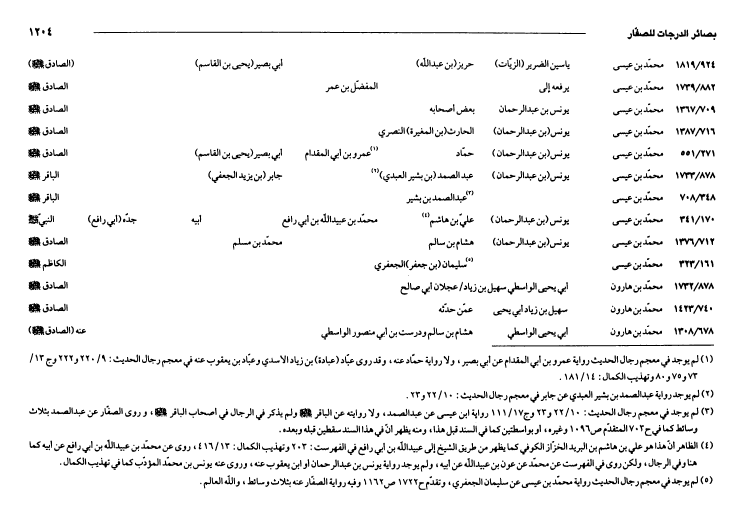 بصائر الدرجات للصفّار ١٢٠٤
١٨١٩/٩٢٤ محمّد بن عيسى ياسين الضرير (الزيّات) حريز (بن عبدالله) أبي بصير (يحيى بن القاسم) (الصادق ﷺ)
١٧٣٩/٨٨٢ محمّد بن عيسى يرفعه إلى المفضّل بن عمر الصادق ﷺ
١٣٦٧/٧٠٩ محمّد بن عيسى يونس بن عبدالرحمان بعض أصحابه الصادق ﷺ
١٣٨٧/٧١٦ محمّد بن عيسى يونس (بن عبدالرحمان) الحارث (بن المغيرة) النصري الصادق ﷺ
٥٥١/٢٧١ محمّد بن عيسى يونس (بن عبدالرحمان) حمّاد عمرو بن أبي المقدام (١) أبي بصير (يحيى بن القاسم) الصادق ﷺ
١٧٣٣/٨٧٨ محمّد بن عيسى يونس (بن عبدالرحمان) عبدالصمد (بن بشير العبدي) (٢) جابر (بن يزيد الجعفي) الباقر ﷺ
٧٠٨/٣٤٨ محمّد بن عيسى عبدالصمد بن بشير (٣) الباقر ﷺ
٣٤١/١٧٠ محمّد بن عيسى يونس (بن عبدالرحمان) عليّ بن هاشم (٤) محمّد بن عبيدالله بن أبي رافع أبيه جدّه (أبي رافع) النبيّ ﷺ
١٣٧٦/٧١٢ محمّد بن عيسى يونس (بن عبدالرحمان) هشام بن سالم محمّد بن مسلم الصادق ﷺ
٣٢٣/١٦١ محمّد بن عيسى سليمان (بن جعفر) الجعفري (٥) الكاظم ﷺ
١٧٣٢/٨٧٨ محمّد بن هارون أبي يحيى الواسطي سهيل بن زياد/ عجلان أبي صالح الصادق ﷺ
١٤٢٣/٧٤٠ محمّد بن هارون سهيل بن زياد أبي يحيى عمّن حدّثه الصادق ﷺ
١٣٠٨/٦٧٨ محمّد بن هارون أبي يحيى الواسطي هشام بن سالم ودرست بن أبي منصور الواسطي عنه (الصادق ﷺ)
(١) لم يوجد في معجم رجال الحديث رواية عمرو بن أبي المقدام عن أبي بصير، ولا رواية حمّاد عنه، وقد روى عبّاد (عبادة) بن زياد الأسدي وعبّاد بن يعقوب عنه في معجم رجال الحديث: ٢٢٠/٩ و٢٢٢ وج ١٣/
٧٣ و٧٥ و٨٠ وتهذيب الكمال: ١٨١/١٤.
(٢) لم يوجد رواية عبدالصمد بن بشير العبدي عن جابر في معجم رجال الحديث: ٢٢/١٠ و٢٣.
(٣) لم يوجد في معجم رجال الحديث: ٢٢/١٠ و٢٣ وج ١١١/١٧ رواية ابن عيسى عن عبدالصمد، ولا روايته عن الباقر ﷺ ولم يذكر في الرجال في أصحاب الباقر ﷺ، وروى الصفّار عن عبدالصمد بثلاث
وسائط كما في ح٧٠٢ المتقدّم ص١٠٩٦ وغيره، أو بواسطتين كما في السند قبل هذا، ومنه يظهر أنّ في هذا السند سقطين قبله وبعده.
(٤) الظاهر أنّ هذا هو علي بن هاشم بن البريد الخزّاز الكوفي كما يظهر من طريق الشيخ إلى عبيدالله بن أبي رافع في الفهرست: ٢٠٣ وتهذيب الكمال: ٤١٦/١٣، روى عن محمّد بن عبيدالله بن أبي رافع عن أبيه كما
هنا وفي الرجال، ولكن روى في الفهرست عن محمّد عن عون بن عبيدالله عن أبيه، ولم يوجد رواية يونس بن عبدالرحمان أو ابن يعقوب عنه، وروى عنه يونس بن محمّد المؤدّب كما في تهذيب الكمال.
(٥) لم يوجد في معجم رجال الحديث رواية محمّد بن عيسى عن سليمان الجعفري، وتقدّم ح١٧٢٢ ص١١٦٢ وفيه رواية الصفّار عنه بثلاث وسائط، والله العالم.